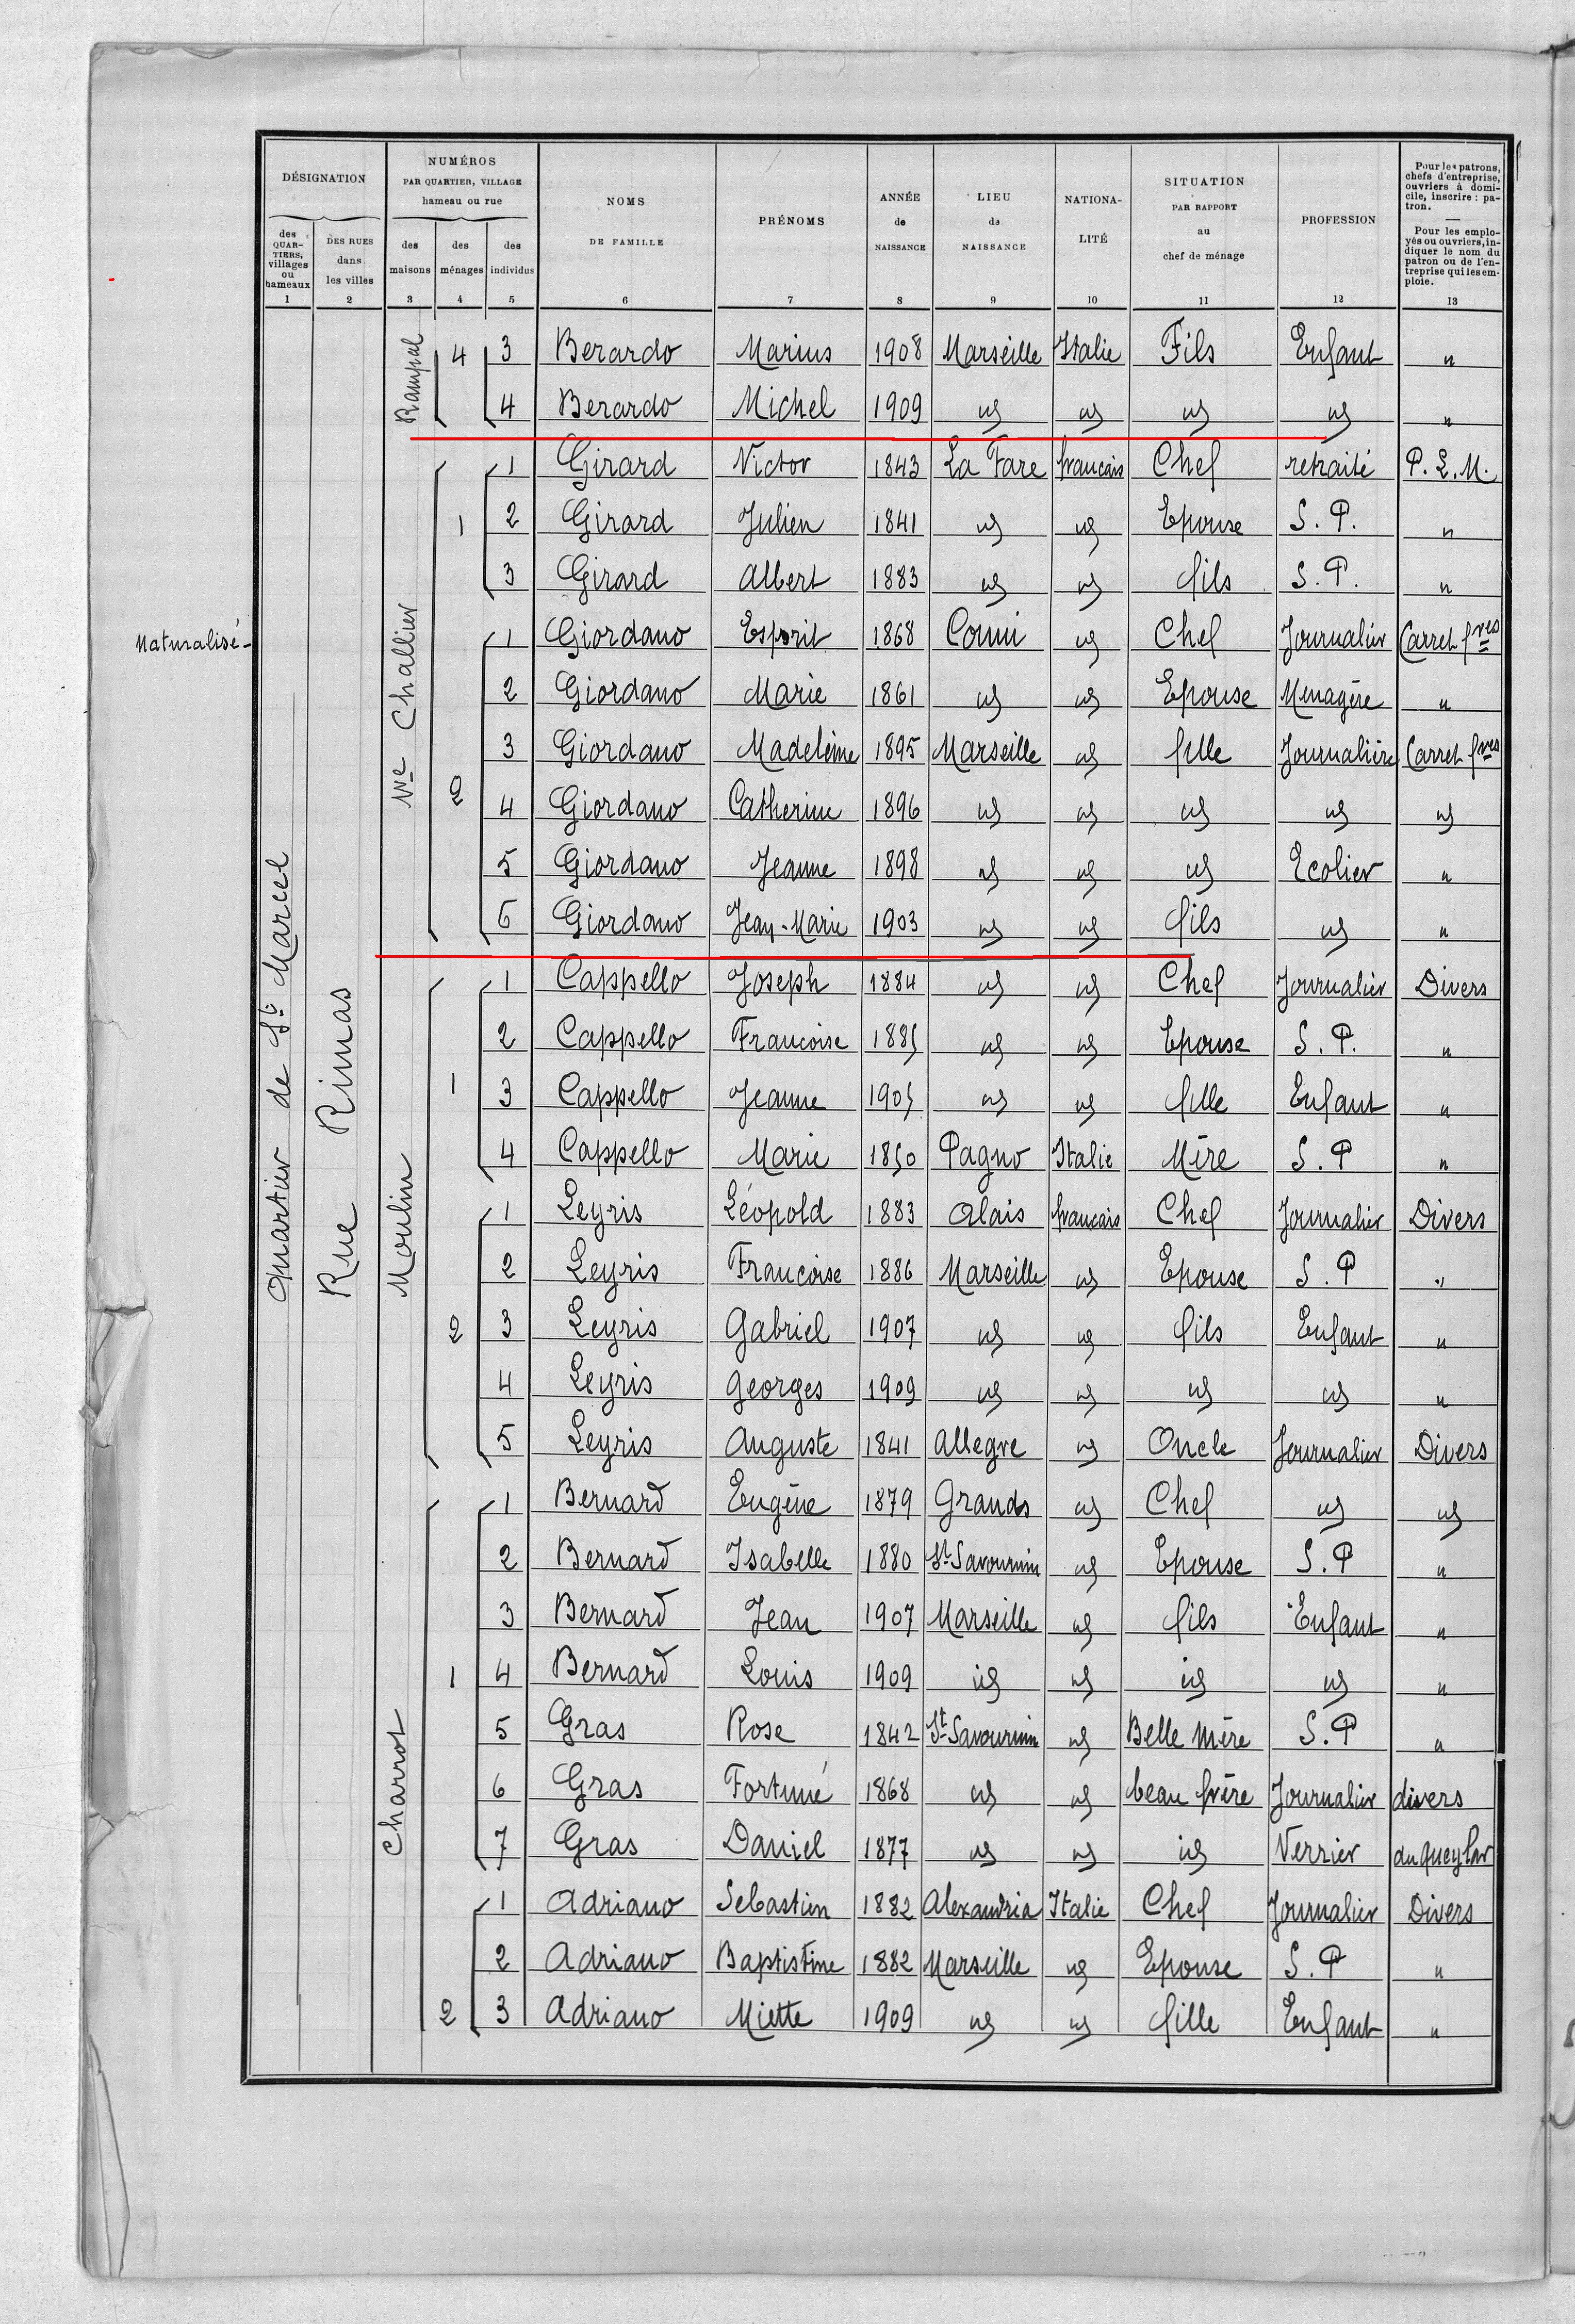 DÉSIGNATION
NUMÉROS
PAR QUARTIER, VILLAGE
hameau ou rue
NOMS
DE FAMILLE
PRÉNOMS
ANNÉE
de
NAISSANCE
LIEU
de
NAISSANCE
NATIONA-
LITÉ
SITUATION
PAR RAPPORT
au
chef de ménage
PROFESSION
Pour les patrons,
chefs d'entreprise,
ouvriers à domi-
cile, inscrire : pa-
tron.
Pour les emplo-
yés ou ouvriers, in-
diquer le nom du
patron ou de l'en-
treprise qui les em-
ploie.
des
QUAR-
TIERS,
villages
ou
hameaux
DES RUES
dans
les villes
des
maisons
des
ménages
des
individus
1 2 3 4 5 6 7 8 9 10 11 12 13
Quartier de St Marcel
Rue Rimas
Rampal
4 3 Berardo Marius 1908 Marseille Italie Fils Enfant "
4 Berardo Michel 1909 id id id id "
Vve Challier
1 Girard Victor 1843 La Fare français Chef retraité P.L.M.
1 2 Girard Julien 1841 id id Epouse S.P. "
3 Girard Albert 1883 id id fils S.P. "
Naturalisé - 1 Giordano Esprit 1868 Couni id Chef Journalier Carret fres
2 Giordano Marie 1861 id id Epouse Menagère "
3 Giordano Madeleine 1895 Marseille id fille Journalière Carret fres
2 4 Giordano Catherine 1896 id id id id id
5 Giordano Jeanne 1898 id id id Ecolier "
6 Giordano Jean-Marie 1903 id id fils id "
Moulin
1 Cappello Joseph 1884 id id Chef Journalier Divers
2 Cappello Françoise 1885 id id Epouse S.P. "
1 3 Cappello Jeanne 1905 id id fille Enfant "
4 Cappello Marie 1850 Pagno Italie Mère S.P "
1 Leyris Léopold 1883 Alais français Chef Journalier Divers
2 Leyris Françoise 1886 Marseille id Epouse S.P "
2 3 Leyris Gabriel 1907 id id fils Enfant "
4 Leyris Georges 1909 id id id id "
5 Leyris Auguste 1841 Allegre id Oncle Journalier Divers
Charrot
1 Bernard Eugène 1879 Grands id Chef id id
2 Bernard Isabelle 1880 St Savournin id Epouse S.P "
3 Bernard Jean 1907 Marseille id fils Enfant "
1 4 Bernard Louis 1909 id id id id "
5 Gras Rose 1842 St Savournin id Belle Mère S.P "
6 Gras Fortuné 1868 id id beau frère Journalier divers
7 Gras Daniel 1877 id id id Verrier du Queylar
1 Adriano Sebastien 1882 Alexandria Italie Chef Journalier Divers
2 Adriano Baptistine 1882 Marseille id Epouse S.P "
2 3 Adriano Miette 1909 id id fille Enfant "